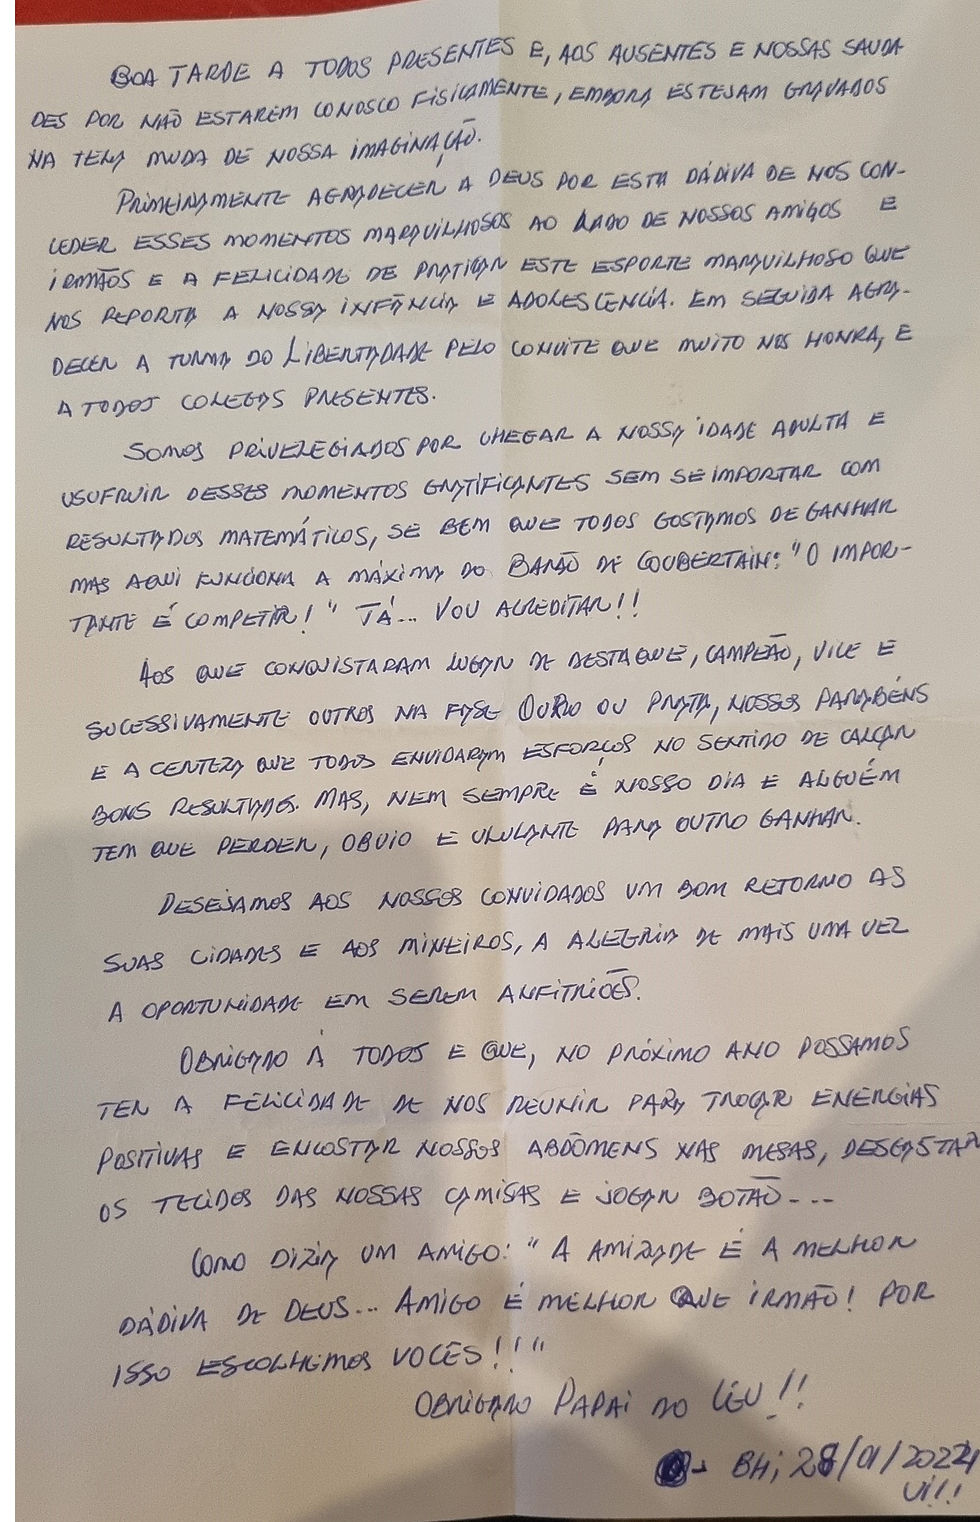 BOA TARDE A TODOS PRESENTES E, AOS AUSENTES E NOSSAS SAUDA
DES POR NÃO ESTAREM CONOSCO FISICAMENTE, EMBORA ESTEJAM GRAVADOS
NA TELA MUDA DE NOSSA IMAGINAÇÃO.
PRIMEIRAMENTE AGRADECER A DEUS POR ESTA DÁDIVA DE NOS CON-
CEDER ESSES MOMENTOS MARAVILHOSOS AO LADO DE NOSSOS AMIGOS E
IRMÃOS E A FELICIDADE DE PRATICAR ESTE ESPORTE MARAVILHOSO QUE
NOS REPORTA A NOSSA INFÂNCIA E ADOLESCÊNCIA. EM SEGUIDA AGRA-
DECER A TURMA DO LIBERTADADE PELO CONVITE QUE MUITO NOS HONRA, E
A TODOS COLEGAS PRESENTES.
SOMOS PRIVELEGIADOS POR CHEGAR A NOSSA IDADE ADULTA E
USUFRUIR DESSES MOMENTOS GRATIFICANTES SEM SE IMPORTAR COM
RESULTADOS MATEMÁTICOS, SE BEM QUE TODOS GOSTAMOS DE GANHAR
MAS AQUI FUNCIONA A MÁXIMA DO BARÃO DE COUBERTAIN: "O IMPOR-
TANTE É COMPETIR!" TÁ... VOU ACREDITAR!!
AOS QUE CONQUISTARAM LUGAR DE DESTAQUE, CAMPEÃO, VICE E
SUCESSIVAMENTE OUTROS NA FASE OURO OU PRATA, NOSSOS PARABÉNS
E A CERTEZA QUE TODOS ENVIDARAM ESFORÇOS NO SENTIDO DE CALÇAR
BONS RESULTADOS. MAS, NEM SEMPRE É NOSSO DIA E ALGUÉM
TEM QUE PERDER, OBVIO E ULULANTE PARA OUTRO GANHAR.
DESEJAMOS AOS NOSSOS CONVIDADOS UM BOM RETORNO AS
SUAS CIDADES E AOS MINEIROS, A ALEGRIA DE MAIS UMA VEZ
A OPORTUNIDADE EM SEREM ANFITRIÕES.
OBRIGADO À TODOS E QUE, NO PRÓXIMO ANO POSSAMOS
TER A FELICIDADE DE NOS REUNIR PARA TROCAR ENERGIAS
POSITIVAS E ENCOSTAR NOSSOS ABDÔMENS NAS MESAS, DESGASTAR
OS TECIDOS DAS NOSSAS CAMISAS E JOGAR BOTÃO....
COMO DIZIA UM AMIGO: "A AMIZADE É A MELHOR
DÁDIVA DE DEUS... AMIGO É MELHOR QUE IRMÃO! POR
ISSO ESCOLHEMOS VOCÊS!!"
OBRIGADO PAPAI DO CÉU!!
BH, 28/01/2022